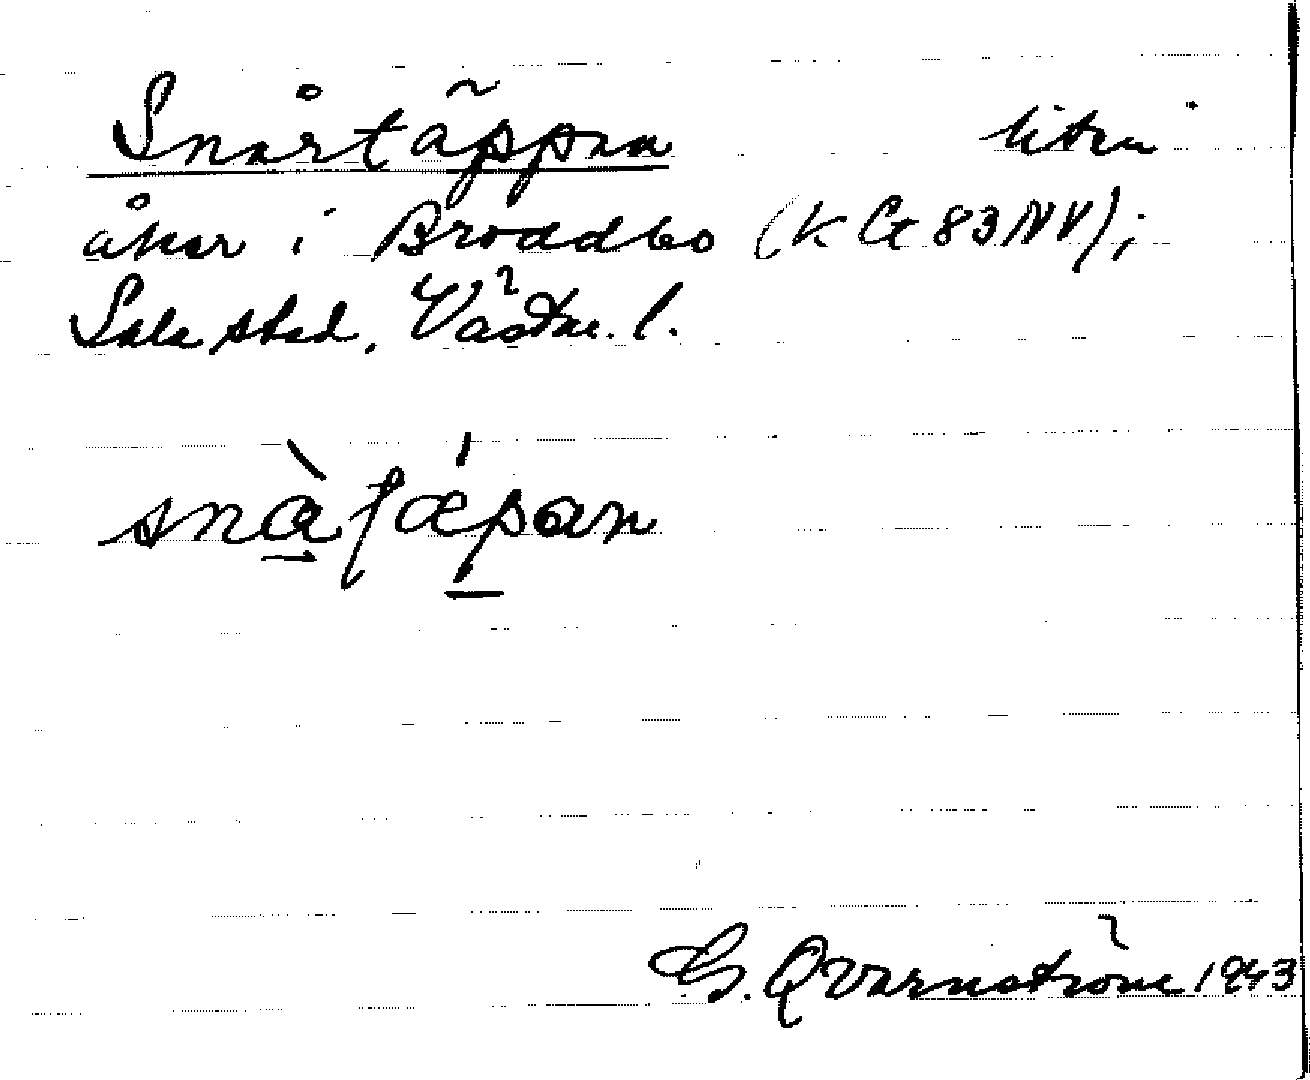 Snårtäppan liten
åker i Broddbo (K G 83 NV);
Sala stad, Västm. l.
snàʃǽpan
G. Qvarnström 1943